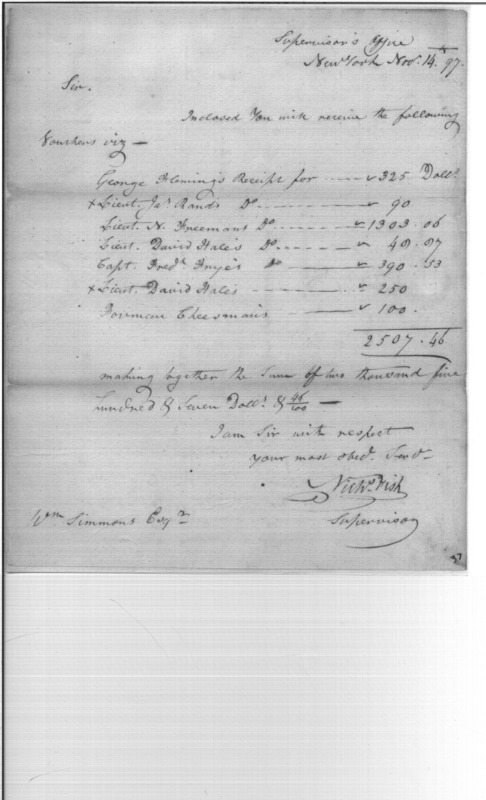 Supervisor's Office
New York Novr. 14. 97.
Sir.
Inclosed You will receive the following
Vouchers viz —
George Fleming's Receipt for ---- 325 Dolls.
x Lieut. Jas. Rands Do. ---- 90
Lieut. N. Freemans Do ---- 1303.06
Lieut. David Hale's Do ---- 48.87
Capt. Fredk. Frye's Do ---- 390.53
x Lieut. David Hale's ---- 250
Forman Cheesman's ---- 100.
2507.46
making together the Sum of two thousand five
hundred & Seven Dolls. & 46/100 —
I am Sir with respect
your most obed. Servt.
Nichs. Fish
Supervisor
Wm Simmons Esqr.